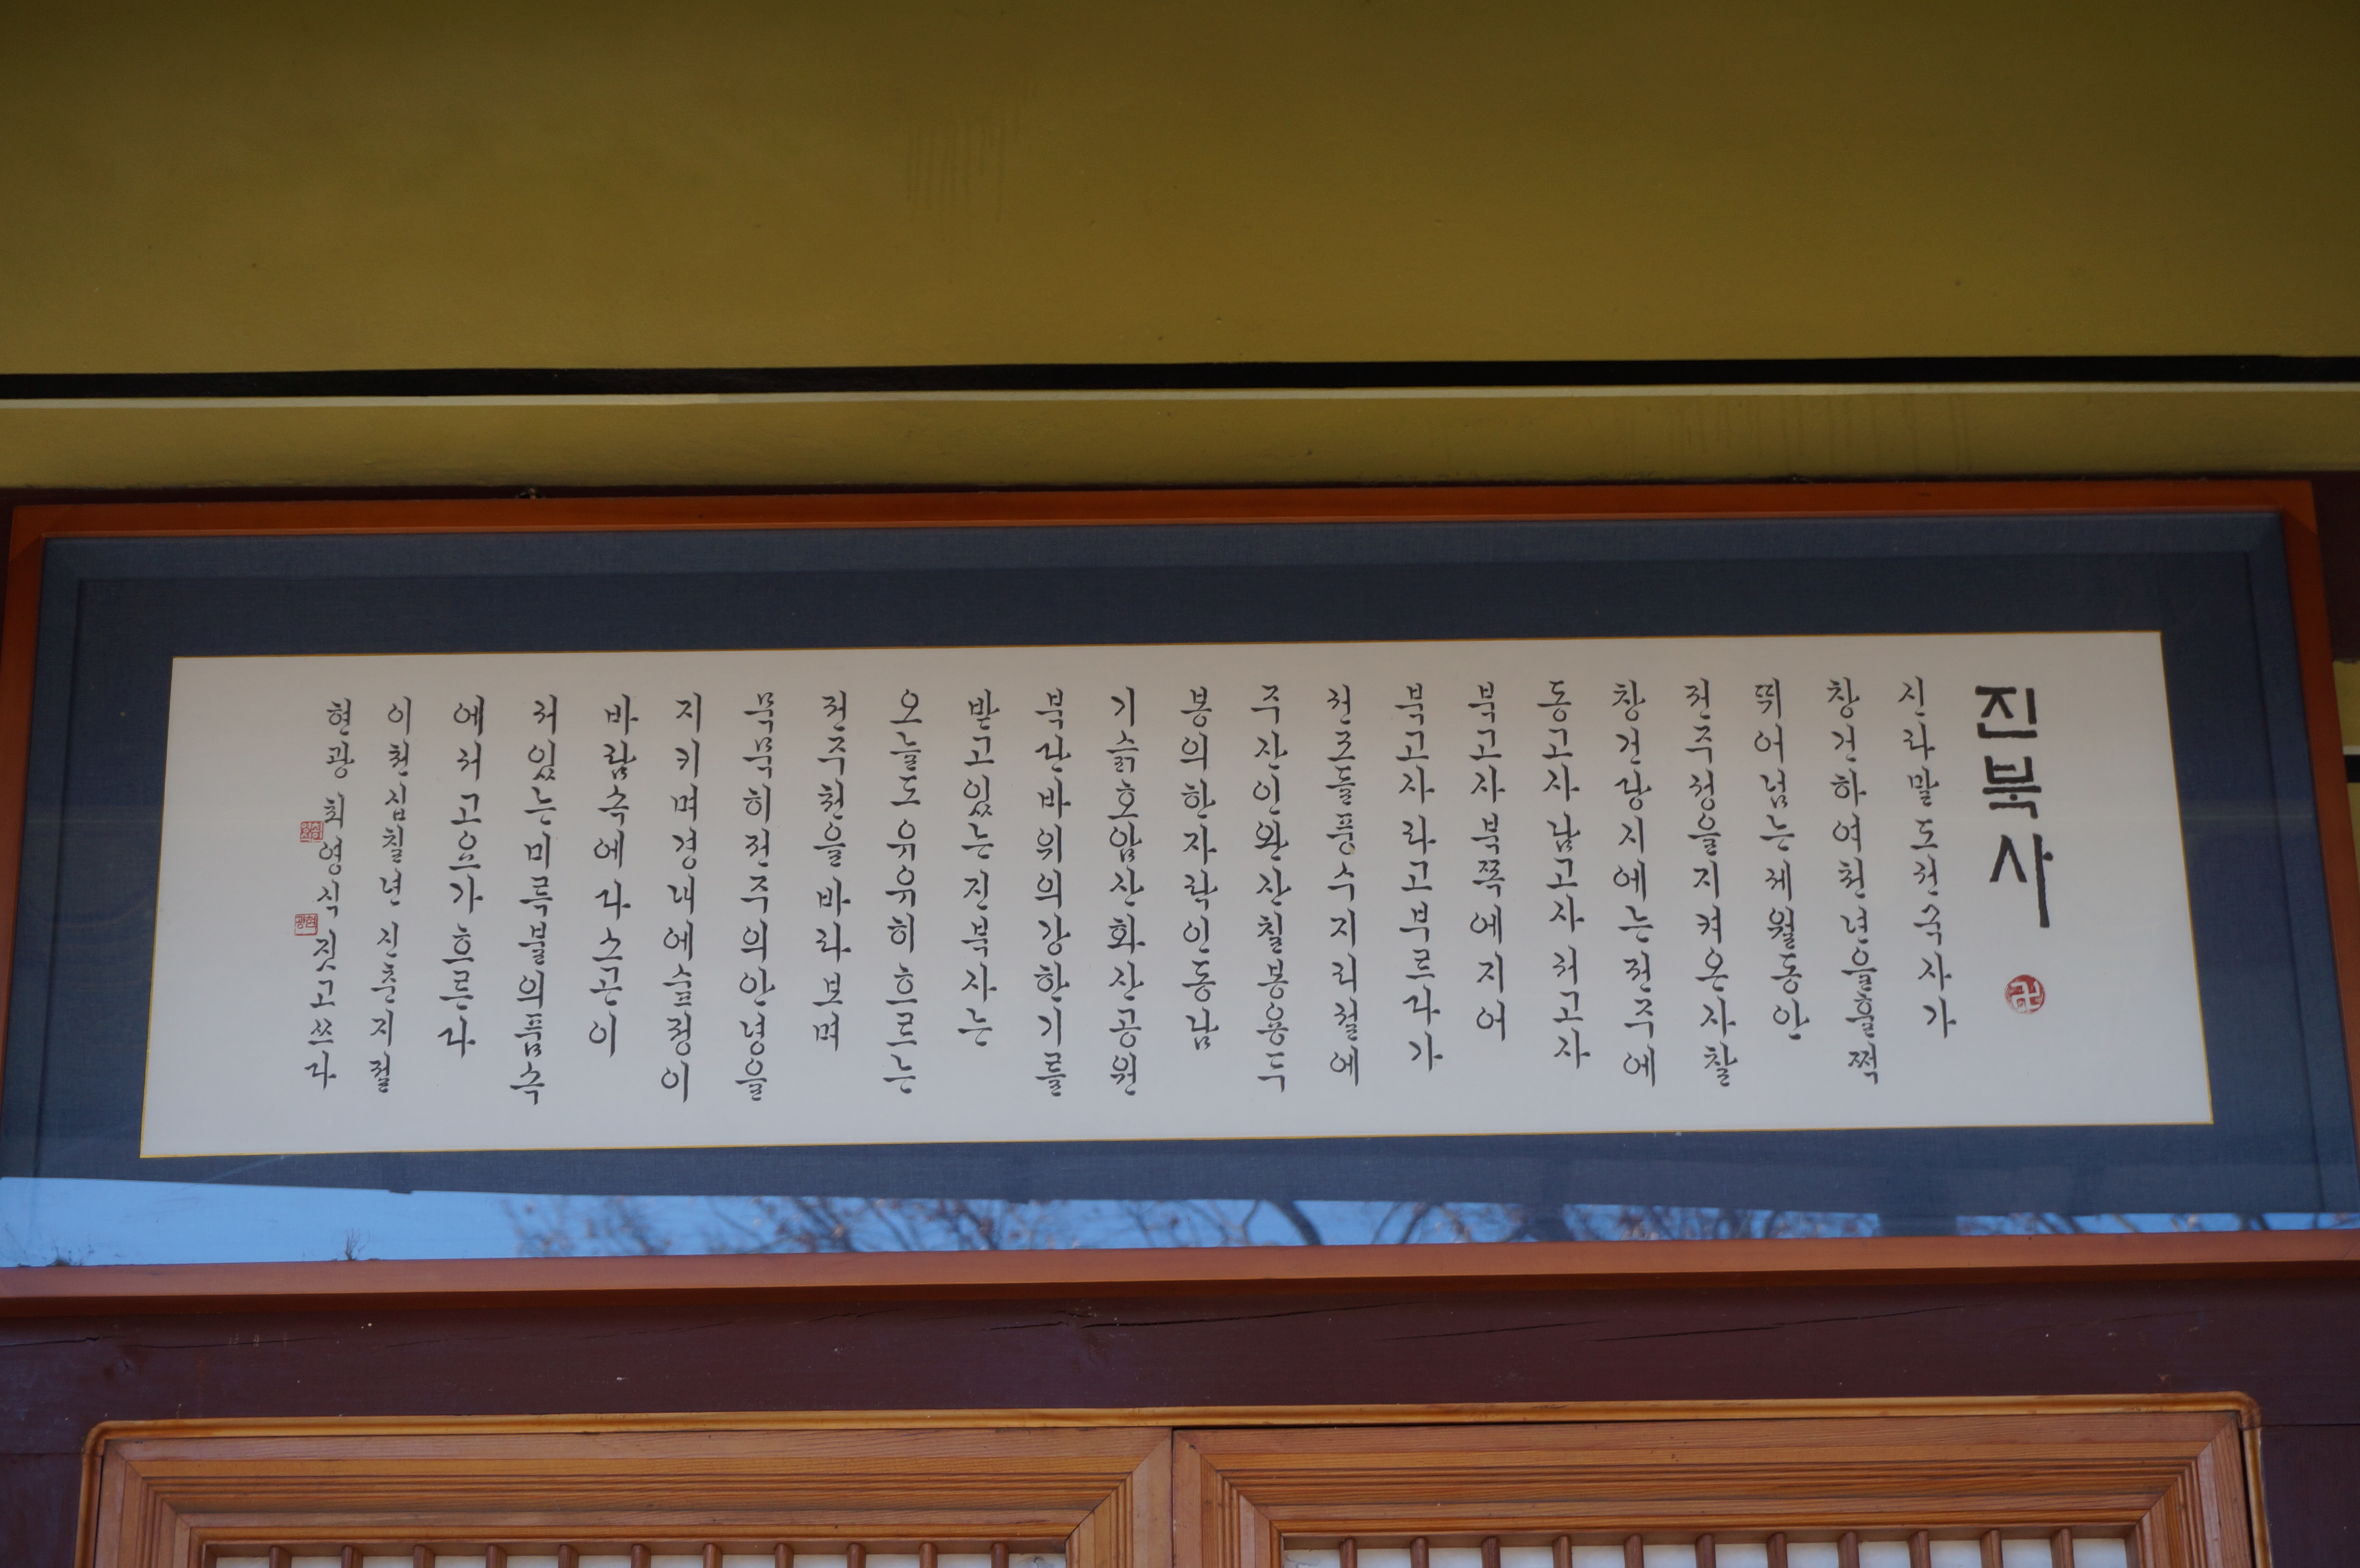 진북사
卍
신라말도선국사가
창건하여천년을훌쩍
뛰어넘는세월동안
전주성을지켜온사찰
창건당시에는전주에
동고사남고사서고사
북고사북쪽에지어
북고사라고부르다가
선조들풍수지리설에
주산인완산칠봉용두
봉의한자락인동남
기슭호암산화산공원
바위의강한기를
받고있는진북사는
오늘도유유히흐르는
전주천을바라보며
묵묵히전주의안녕을
지키며경내에숲정이
바람속에다소곤이
서있는미륵불의품속
에서고요가흐른다
이천십칠년 신춘지절
현광 최영식 짓고쓰다